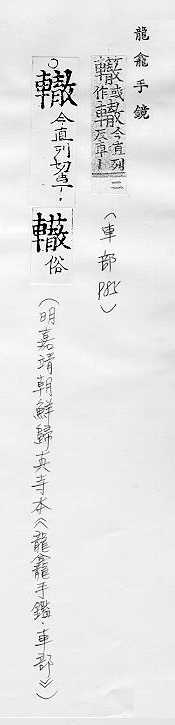 龍龕手鏡
轍或作轍今直列反車丨二
(車部 P85)
○轍今直列切車丨
轍俗
(明嘉靖朝鮮歸英寺本《龍龕手鑑·車部》)